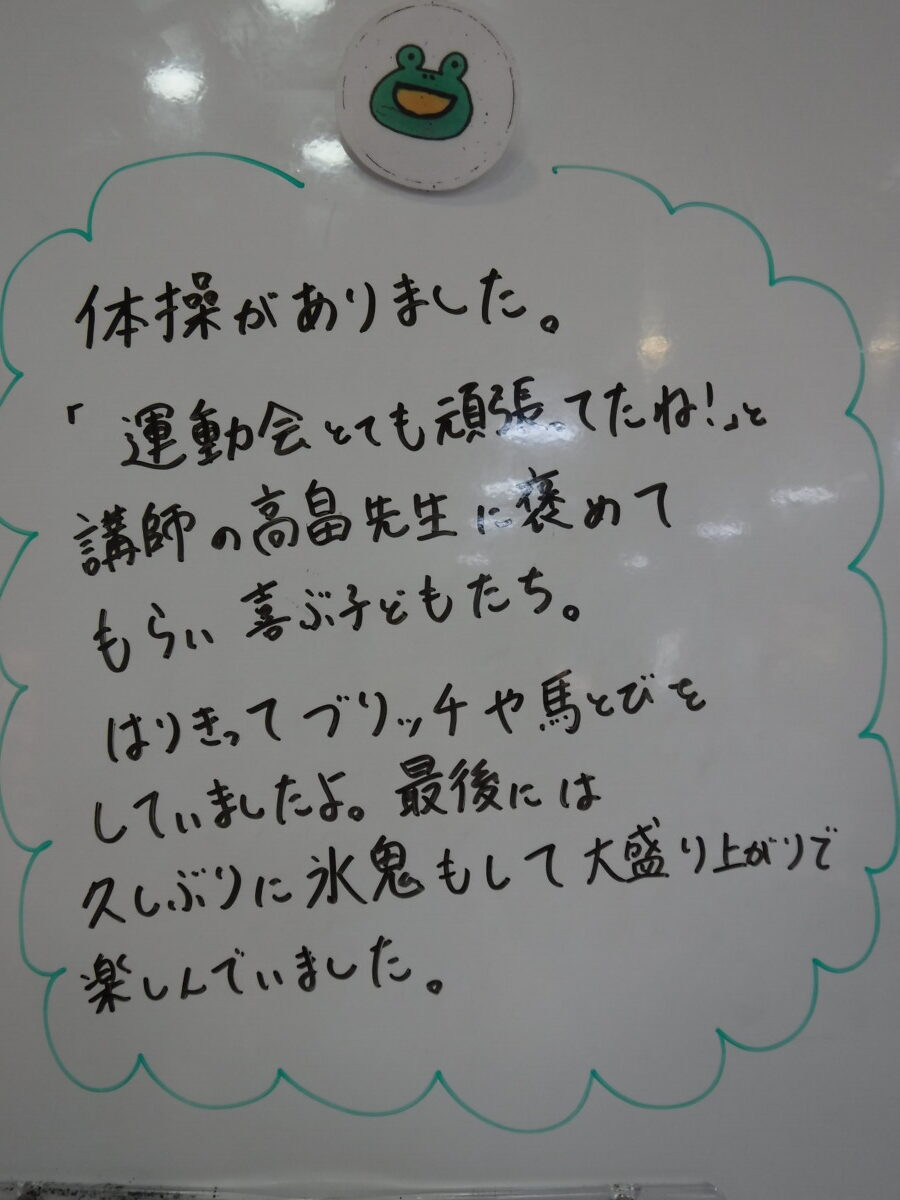 体操がありました。
「運動会とても頑張ってたね!」と
講師の高畠先生に褒めて
もらい喜ぶ子どもたち。
はりきってブリッチや馬とびを
していましたよ。最後には
久しぶりに氷鬼もして大盛り上がりで
楽しんでいました。